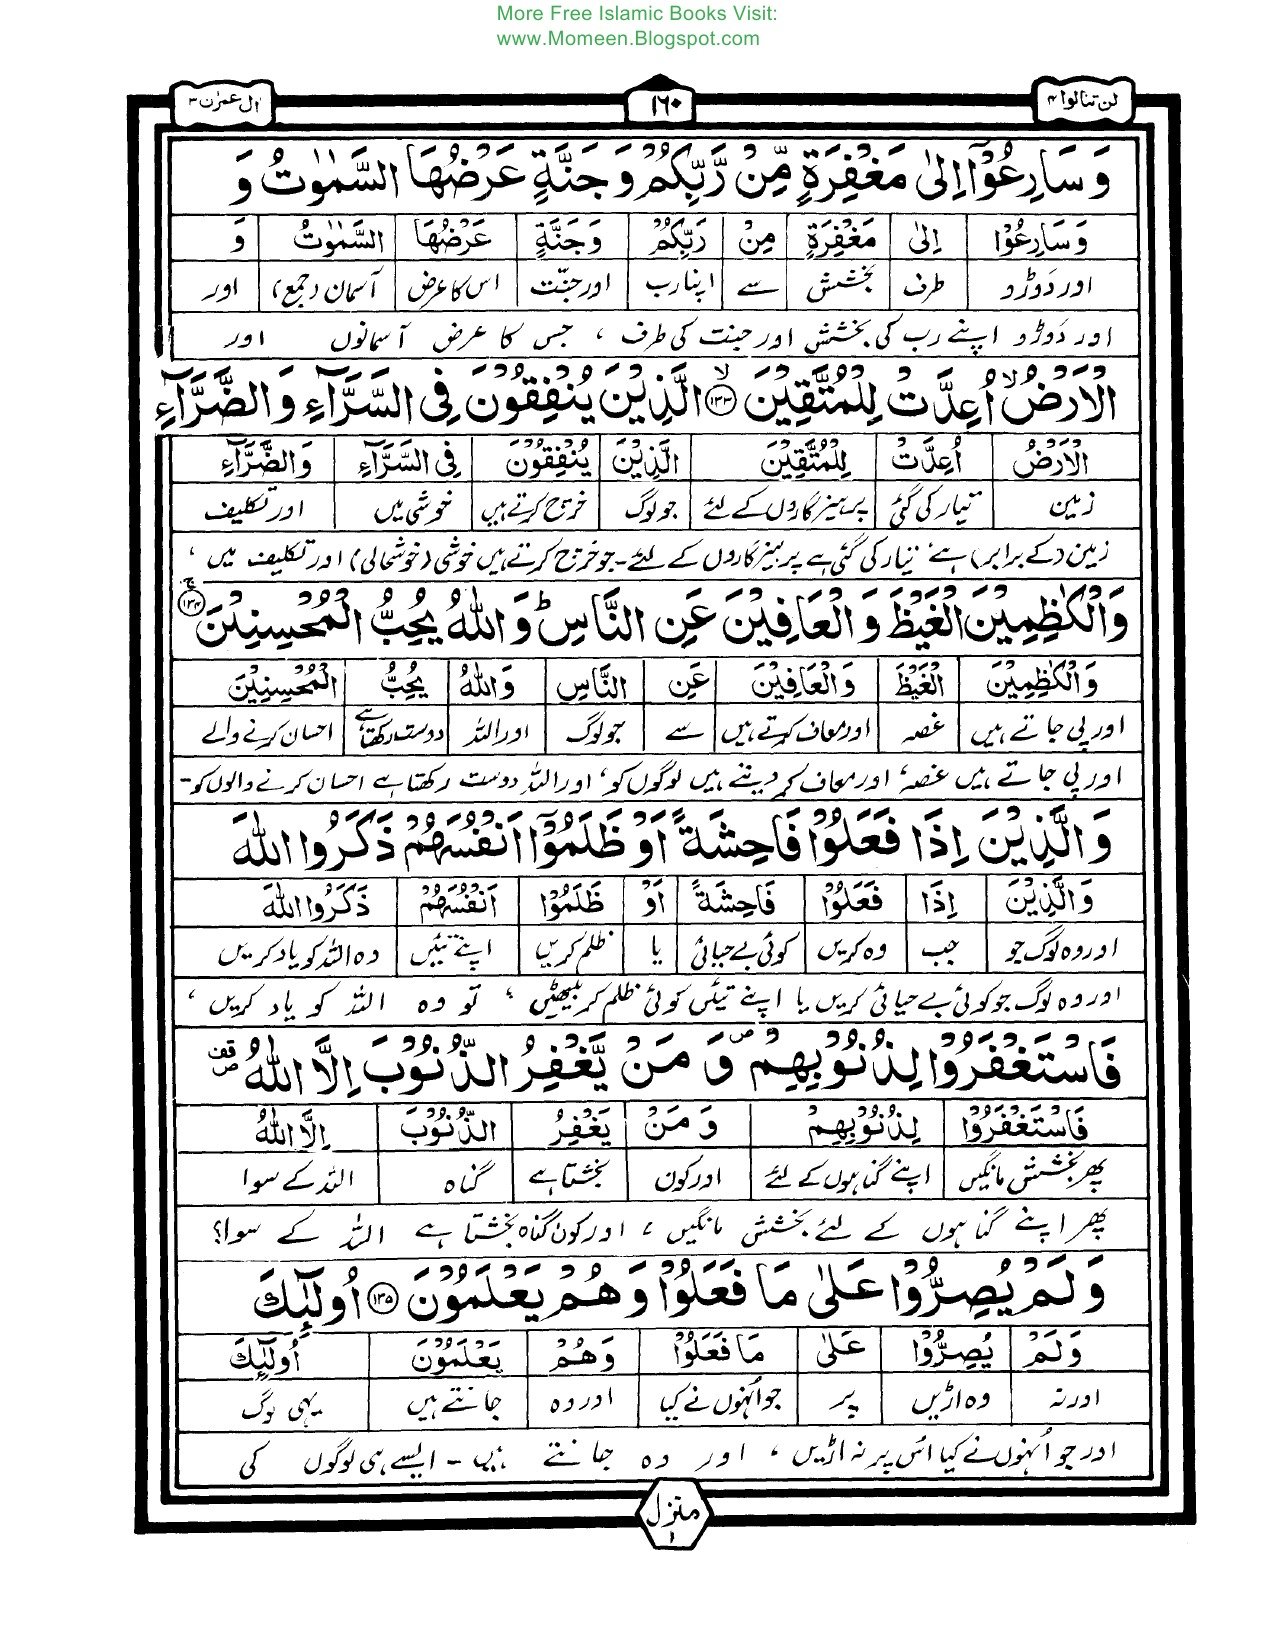 More Free Islamic Books Visit:
www.Momeen.Blogspot.com
لن تنالوا ۴
۱۶۰
اٰل عمرٰن ۳
وَسَارِعُوْۤا اِلٰى مَغْفِرَةٍ مِّنْ رَّبِّكُمْ وَجَنَّةٍ عَرْضُهَا السَّمٰوٰتُ وَ
وَسَارِعُوْۤا اِلٰى مَغْفِرَةٍ مِنْ رَبِّكُمْ وَجَنَّةٍ عَرْضُهَا السَّمٰوٰتُ وَ
اور دوڑو طرف بخشش سے اپنا رب اور جنت اس کا عرض آسمان (جمع) اور
اور دَوڑو اپنے رب کی بخشش اور جنت کی طرف ، جس کا عرض آسمانوں اور
الْاَرْضُ ۙ اُعِدَّتْ لِلْمُتَّقِيْنَ ۙ ﴿۱۳۳﴾ الَّذِيْنَ يُنْفِقُوْنَ فِى السَّرَّآءِ وَالضَّرَّآءِ
الْاَرْضُ اُعِدَّتْ لِلْمُتَّقِيْنَ الَّذِيْنَ يُنْفِقُوْنَ فِى السَّرَّآءِ وَالضَّرَّآءِ
زمین تیار کی گئی پرہیزگاروں کے لئے جو لوگ خرچ کرتے ہیں خوشی میں اور تکلیف
زمین (کے برابر) ہے، تیار کی گئی ہے پرہیزگاروں کے لئے۔ جو خرچ کرتے ہیں خوشی (خوشحالی) اور تکلیف میں ،
وَالْكٰظِمِيْنَ الْغَيْظَ وَالْعَافِيْنَ عَنِ النَّاسِ ؕ وَاللّٰهُ يُحِبُّ الْمُحْسِنِيْنَ ۚ ﴿۱۳۴﴾
وَالْكٰظِمِيْنَ الْغَيْظَ وَالْعَافِيْنَ عَنِ النَّاسِ وَاللّٰهُ يُحِبُّ الْمُحْسِنِيْنَ
اور پی جاتے ہیں غصہ اور معاف کرتے ہیں سے جو لوگ اور اللہ دوست رکھتا ہے احسان کرنے والے
اور پی جاتے ہیں غصہ، اور معاف کر دیتے ہیں لوگوں کو، اور اللہ دوست رکھتا ہے احسان کرنے والوں کو۔
وَالَّذِيْنَ اِذَا فَعَلُوْا فَاحِشَةً اَوْ ظَلَمُوْۤا اَنْفُسَهُمْ ذَكَرُوا اللّٰهَ
وَالَّذِيْنَ اِذَا فَعَلُوْا فَاحِشَةً اَوْ ظَلَمُوْا اَنْفُسَهُمْ ذَكَرُوا اللّٰهَ
اور وہ لوگ جو جب وہ کریں کوئی بے حیائی یا ظلم کریں اپنے تئیں وہ اللہ کو یاد کریں
اور وہ لوگ جو کوئی بے حیائی کریں یا اپنے تئیں کوئی ظلم کر بیٹھیں ، تو وہ اللہ کو یاد کریں ،
فَاسْتَغْفَرُوْا لِذُنُوْبِهِمْ ۪ وَمَنْ يَّغْفِرُ الذُّنُوْبَ اِلَّا اللّٰهُ ۪ قف
فَاسْتَغْفَرُوْا لِذُنُوْبِهِمْ وَمَنْ يَغْفِرُ الذُّنُوْبَ اِلَّا اللّٰهُ
پھر بخشش مانگیں اپنے گناہوں کے لئے اور کون بخشتا ہے گناہ اللہ کے سوا
پھر اپنے گناہوں کے لئے بخشش مانگیں ، اور کون گناہ بخشتا ہے اللہ کے سوا؟
وَلَمْ يُصِرُّوْا عَلٰى مَا فَعَلُوْا وَهُمْ يَعْلَمُوْنَ ﴿۱۳۵﴾ اُولٰٓئِكَ
وَلَمْ يُصِرُّوْا عَلٰى مَا فَعَلُوْا وَهُمْ يَعْلَمُوْنَ اُولٰٓئِكَ
اور نہ وہ اڑیں پر جو انہوں نے کیا اور وہ جانتے ہیں یہی لوگ
اور جو اُنہوں نے کیا اس پر نہ اڑیں ، اور وہ جانتے ہیں ۔ ایسے ہی لوگوں کی
منزل ۱